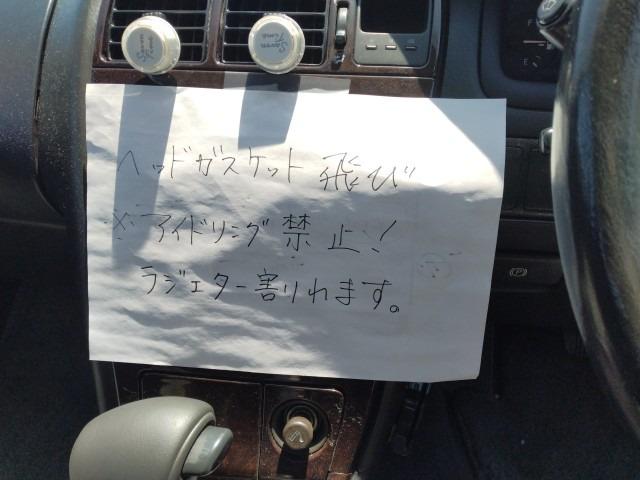 Seven Time
Seven Time
ヘッドガスケット飛び
※アイドリング禁止!
ラジエター割りれます。
F
E
P